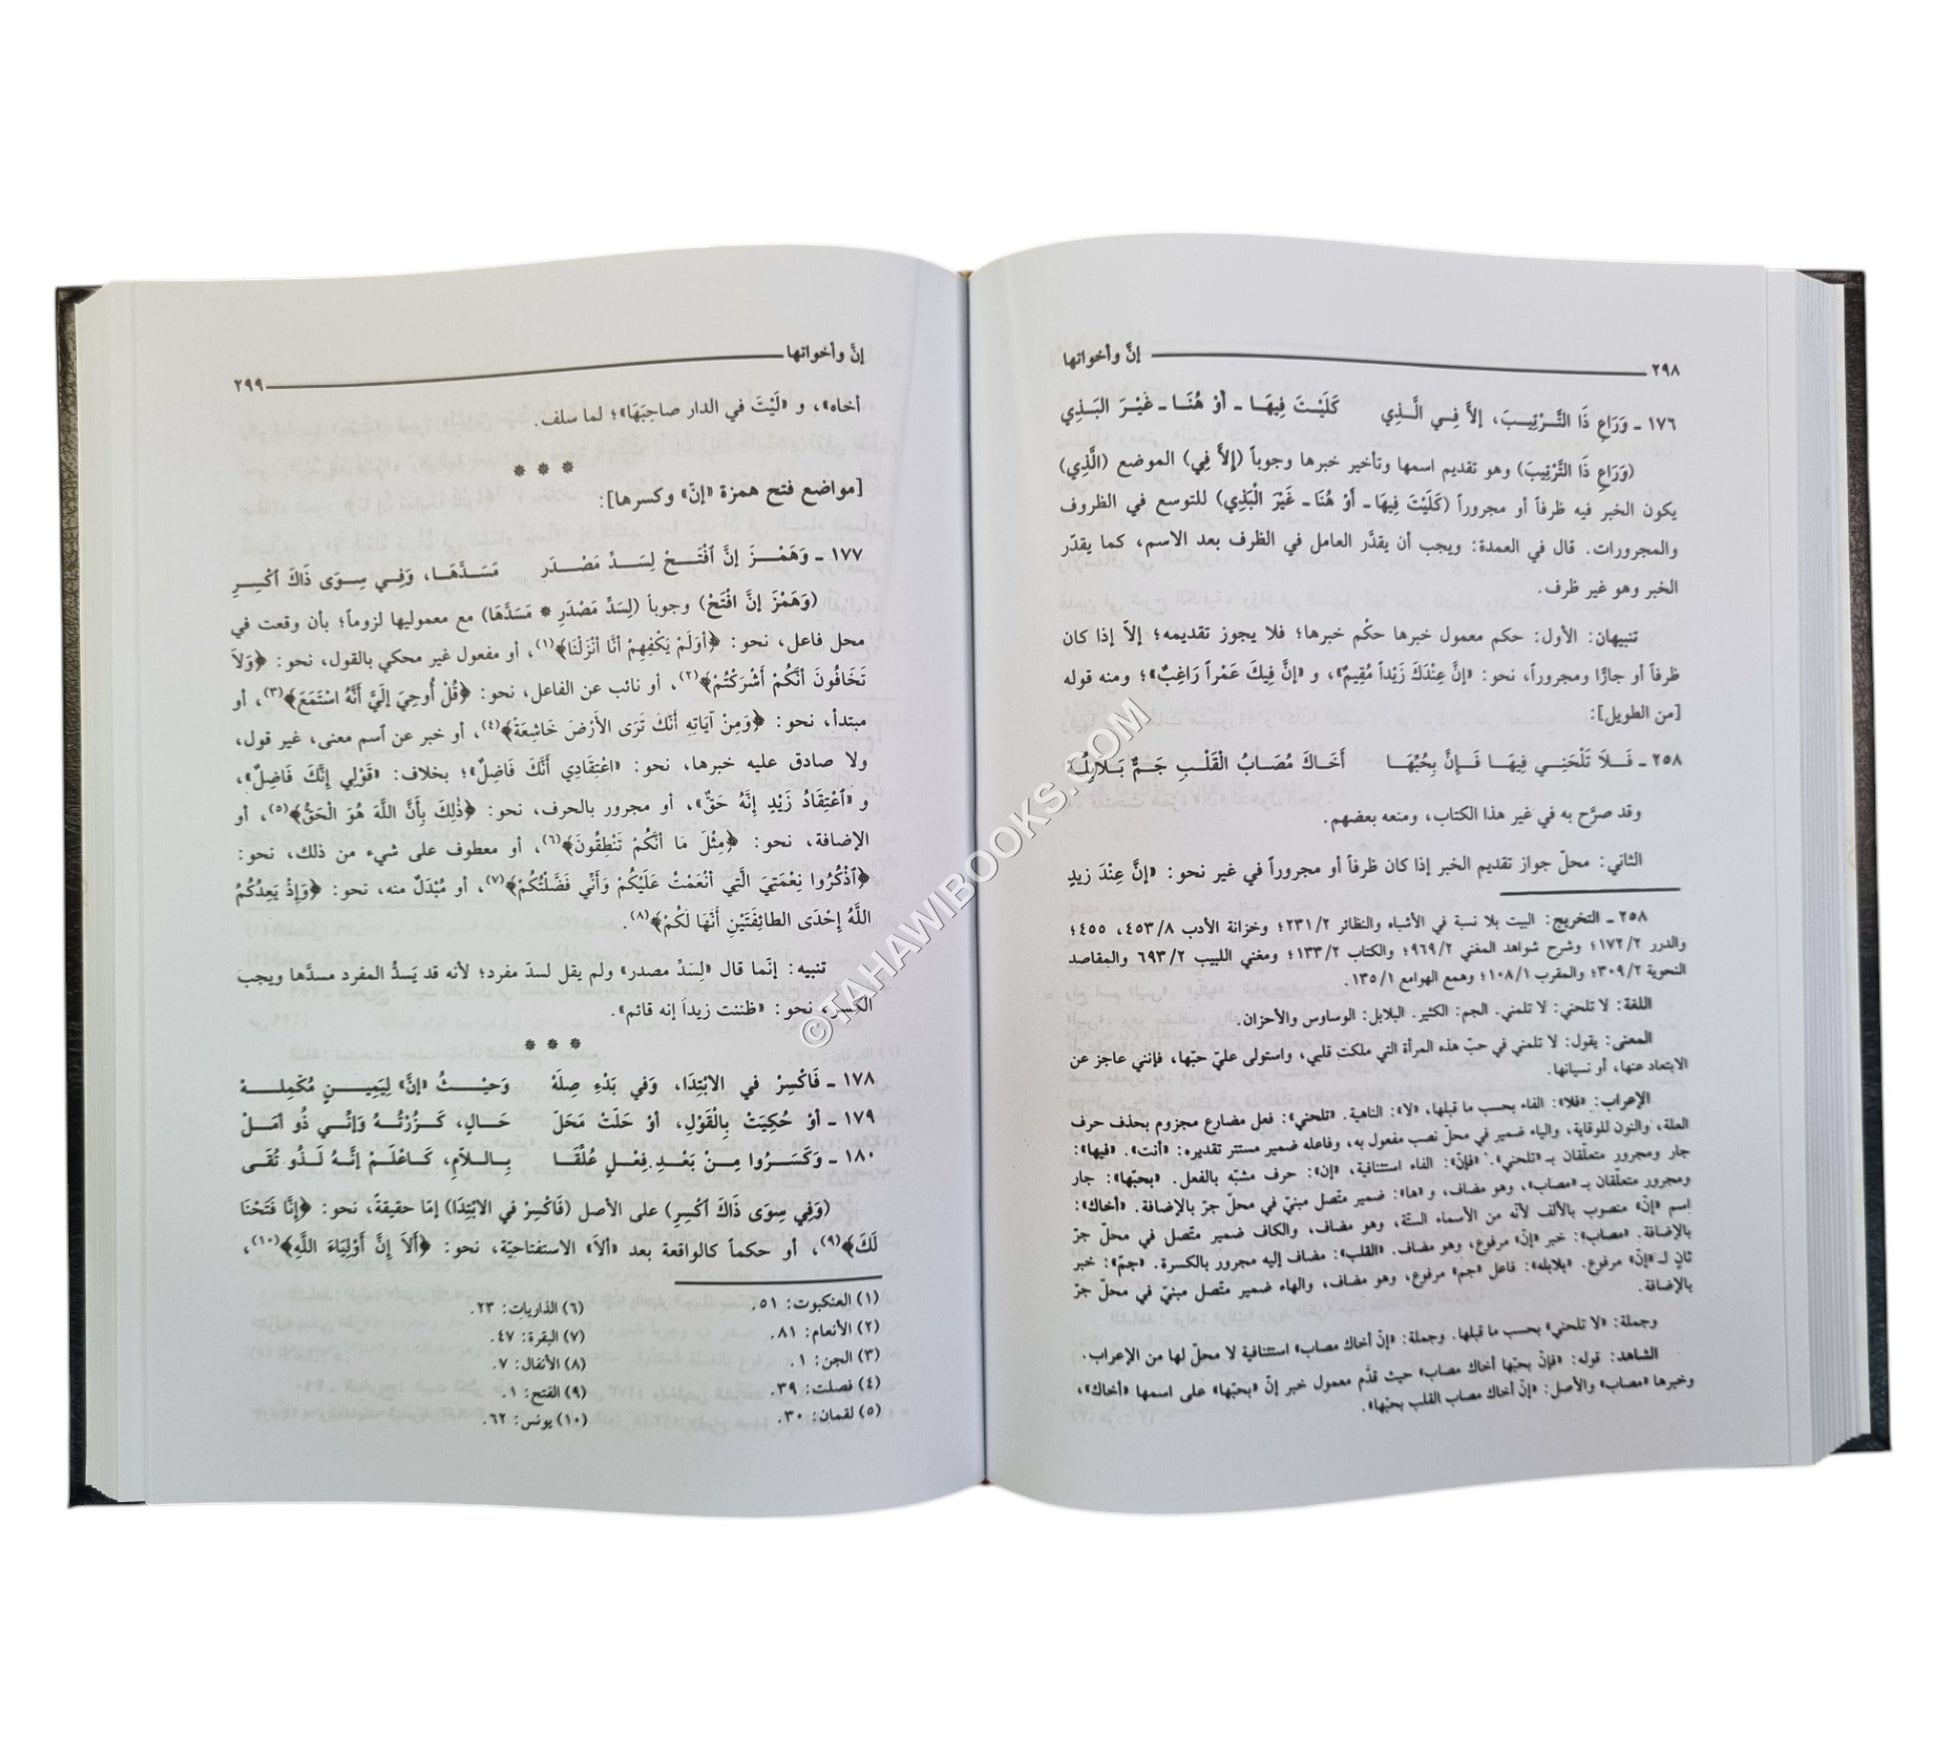 ٢٩٨ إنَّ وأخواتها
١٧٦ ـ وَرَاعِ ذَا التَّـرْتِيـبَ، إلاَّ فِـي الَّـذِي كَلَيْـتَ فِيهَـا ـ أوْ هُنَـا ـ غَيْـرَ البَـذِي
(وَرَاعِ ذَا التَّرْتِيبَ) وهو تقديم اسمها وتأخير خبرها وجوباً (إلاَّ فِي) الموضع (الَّذِي)
يكون الخبر فيه ظرفاً أو مجروراً (كَلَيْتَ فِيهَا ـ أوْ هُنَا ـ غَيْرَ الْبَذِي) للتوسع في الظروف
والمجرورات. قال في العمدة: ويجب أن يقدَّر العامل في الظرف بعد الاسم، كما يقدّر
الخبر وهو غير ظرف.
تنبيهان: الأول: حكم معمول خبرها حكْم خبرها؛ فلا يجوز تقديمه؛ إلاّ إذا كان
ظرفاً أو جارًّا ومجروراً، نحو: «إنَّ عِنْدَكَ زَيْداً مُقِيمٌ»، و «إنَّ فِيكَ عَمْراً رَاغِبٌ»؛ ومنه قوله
[من الطويل]:
٢٥٨ ـ فَـلاَ تَلْحَنِـي فِيهَـا فَـإنَّ بِحُبِّهَـا أخَـاكَ مُصَـابُ الْقَلْـبِ جَـمٌّ بَـلاَبِلُهْ
وقد صرَّح به في غير هذا الكتاب، ومنعه بعضهم.
الثاني: محلّ جواز تقديم الخبر إذا كان ظرفاً أو مجروراً في غير نحو: «إنَّ عِنْدَ زيدٍ
٢٥٨ ـ التخريج: البيت بلا نسبة في الأشباه والنظائر ٢٣١/٢؛ وخزانة الأدب ٤٥٣/٨، ٤٥٥؛
والدرر ١٧٢/٢؛ وشرح شواهد المغني ٩٦٩/٢؛ والكتاب ١٣٣/٢؛ ومغني اللبيب ٦٩٣/٢ والمقاصد
النحوية ٣٠٩/٢؛ والمقرب ١٠٨/١؛ وهمع الهوامع ١٣٥/١.
اللغة: لا تلحني: لا تلمني. الجم: الكثير. البلابل: الوساوس والأحزان.
المعنى: يقول: لا تلمني في حبّ هذه المرأة التي ملكت قلبي، واستولى عليّ حبّها، فإنني عاجز عن
الابتعاد عنها، أو نسيانها.
الإعراب: «فلا»: الفاء بحسب ما قبلها، «لا»: الناهية. «تلحني»: فعل مضارع مجزوم بحذف حرف
العلة، والنون للوقاية، والياء ضمير في محلّ نصب مفعول به، وفاعله ضمير مستتر تقديره: «أنت». «فيها»:
جار ومجرور متعلّقان بـ «تلحني». «فإنّ»: الفاء استئنافية، «إن»: حرف مشبّه بالفعل. «بحبّها»: جار
ومجرور متعلّقان بـ «مصاب»، وهو مضاف، و «ها»: ضمير متّصل مبنيّ في محلّ جرّ بالإضافة. «أخاك»:
اسم «إنّ» منصوب بالألف لأنّه من الأسماء الستّة، وهو مضاف، والكاف ضمير متّصل في محلّ جرّ
بالإضافة. «مصاب»: خبر «إنّ» مرفوع، وهو مضاف. «القلب»: مضاف إليه مجرور بالكسرة. «جمّ»: خبر
ثانٍ لـ «إنّ» مرفوع. «بلابله»: فاعل «جم» مرفوع، وهو مضاف، والهاء ضمير متّصل مبنيّ في محلّ جرّ
بالإضافة.
وجملة: «لا تلحني» بحسب ما قبلها. وجملة: «إنّ أخاك مصاب» استئنافية لا محلّ لها من الإعراب.
الشاهد: قوله: «فإنّ بحبّها أخاك مصاب» حيث قدَّم معمول خبر إنّ «بحبّها» على اسمها «أخاك»،
وخبرها «مصاب» والأصل: «إنّ أخاك مصاب القلب بحبّها».
إنَّ وأخواتها ٢٩٩
أخاه»، و «لَيْتَ في الدار صاحِبَهَا»؛ لما سلف.
* * *
[مواضع فتح همزة «إنّ» وكسرها]:
١٧٧ ـ وَهَمْـزَ إنَّ ٱفْتَـحْ لِسَـدِّ مَصْـدَرِ مَسَـدَّهَـا، وَفِـي سِـوَى ذَاكَ ٱكْسِـرِ
(وَهَمْزَ إنَّ افْتَحْ) وجوباً (لِسَدِّ مَصْدَرِ * مَسَدَّهَا) مع معموليها لزوماً؛ بأن وقعت في
محل فاعل، نحو: ﴿أوَلَمْ يَكْفِهِمْ أنَّا أنْزَلْنَا﴾(١)، أو مفعول غير محكي بالقول، نحو: ﴿وَلاَ
تَخَافُونَ أنَّكُمْ أشْرَكْتُمْ﴾(٢)، أو نائب عن الفاعل، نحو: ﴿قُلْ أُوحِيَ إلَيَّ أنَّهُ اسْتَمَعَ﴾(٣)، أو
مبتدأ، نحو: ﴿وَمِنْ آيَاتِهِ أنَّكَ تَرَى الأرْضَ خَاشِعَةً﴾(٤)، أو خبر عن ٱسم معنى، غير قول،
ولا صادق عليه خبرها، نحو: «اعْتِقَادِي أنَّكَ فَاضِلٌ»؛ بخلاف: «قَوْلِي إنَّكَ فَاضِلٌ»،
و «ٱعْتِقَادُ زَيْدٍ إنَّهُ حَقٌّ»، أو مجرور بالحرف، نحو: ﴿ذٰلِكَ بِأنَّ اللَّهَ هُوَ الْحَقُّ﴾(٥)، أو
الإضافة، نحو: ﴿مِثْلَ مَا أنَّكُمْ تَنْطِقُونَ﴾(٦)، أو معطوف على شيء من ذلك، نحو:
﴿ٱذْكُرُوا نِعْمَتِيَ الَّتِي أنْعَمْتُ عَلَيْكُمْ وَأنِّي فَضَّلْتُكُمْ﴾(٧)، أو مُبْدَلٌ منه، نحو: ﴿وَإذْ يَعِدُكُمُ
اللَّهُ إحْدَى الطائِفَتَيْنِ أنَّهَا لَكُمْ﴾(٨).
تنبيه: إنّما قال «لِسَدِّ مصدر» ولم يقل لسدّ مفرد؛ لأنه قد يَسدُّ المفرد مسدَّها ويجب
الكسر، نحو: «ظننت زيداً إنه قائم».
* * *
١٧٨ ـ فَاكْسِرْ في الابْتِدَا، وَفي بَدْءِ صِلَهْ وَحَيْـثُ «إنَّ» لِيَمِيـنٍ مُكْمِلَـهْ
١٧٩ ـ أوْ حُكِيَتْ بِالْقَوْلِ، أوْ حَلَّتْ مَحَلّ حَـالٍ، كَـزُرْتُـهُ وَإنِّـي ذُو أمَـلْ
١٨٠ ـ وَكَسَـرُوا مِـنْ بَعْـدِ فِعْـلٍ عُلِّقَـا بِـالـلاَّمِ، كَـاعْلَـمْ إنَّـهُ لَـذُو تُقَـى
(وَفِي سِوَى ذَاكَ ٱكْسِرِ) على الأصل (فَاكْسِرْ في الابْتِدَا) إمّا حقيقةً، نحو: ﴿إنَّا فَتَحْنَا
لَكَ﴾(٩)، أو حكماً كالواقعة بعد «ألاَ» الاستفتاحيّة، نحو: ﴿ألاَ إنَّ أوْلِيَاءَ اللَّهِ﴾(١٠)،
(١) العنكبوت: ٥١.
(٢) الأنعام: ٨١.
(٣) الجن: ١.
(٤) فصلت: ٣٩.
(٥) لقمان: ٣٠.
(٦) الذاريات: ٢٣.
(٧) البقرة: ٤٧.
(٨) الأنفال: ٧.
(٩) الفتح: ١.
(١٠) يونس: ٦٢.
©TAHAWIBOOKS.COM